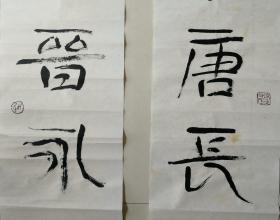 唐長
晉永